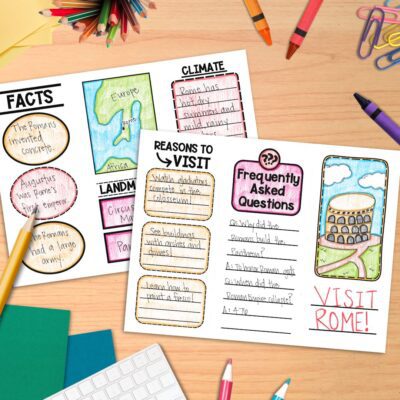 FACTS
The Romans
invented
concrete.
Augustus
was Rome's
first emperor
The Romans
had a large
army.
Europe
Africa
LANDM
Circus
Ma
Pan
CLIMATE
Rome has
hot, dry
summers and
mild, rainy
REASONS TO
VISIT
Watch gladiators
compete in the
Colosseum!
See buildings
with arches and
domes!
Learn how to
paint a fresco!
???
Frequently
Asked
Questions
Q: Why did the
Romans build the
Pantheon?
A: To honor Roman gods
Q: When did the
Roman Empire collapse?
A: 476
VISIT
ROME!